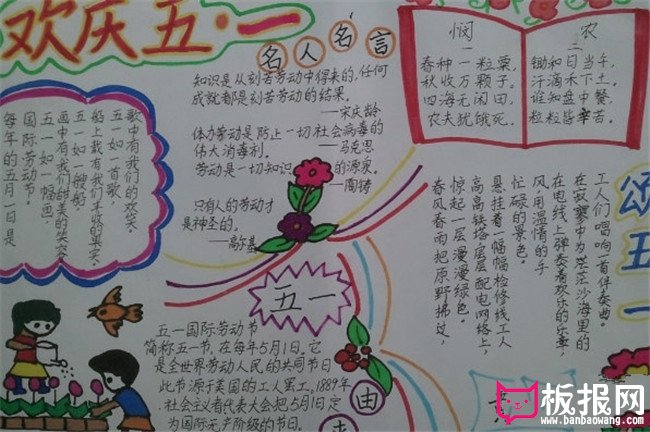 欢庆五·一
名人名言
知识是从刻苦劳动中得来的,任何
成就都是刻苦劳动的结果。
——宋庆龄
体力劳动是防止一切社会病毒的
伟大消毒剂。——马克思
劳动是一切知识的源泉。
——陶铸
只有人的劳动才
是神圣的。
——高尔基
悯 农
二
春种一粒粟,
秋收万颗子。
四海无闲田,
农夫犹饿死。
锄和日当午,
汗滴禾下土,
谁知盘中餐,
粒粒皆辛苦。
每年的五月一日是
国际劳动节。
五一如一幅画,
画中有我们甜美的笑容
五一如一艘船,
船上载有我们丰收的果实。
五一如一首歌
歌中有我们的欢笑。
颂五一
春风春雨把原野拂过,
惊起一层漫漫绿色。
高高铁塔层层配电网络上,
悬挂着一幅幅检修线工人
忙碌的景色。
风用温情的手
在电线上弹奏着欢乐的乐章,
在寂寞中为茫茫沙海里的
工人们唱响一首伴奏曲。
五一
五一国际劳动节
简称五一节,在每年5月1日。它
是全世界劳动人民的共同节日
此节源于美国的工人罢工,1889年
社会主义者代表大会把5月1日定
为国际无产阶级的节日。
由
板报网
www.banbaowang.com